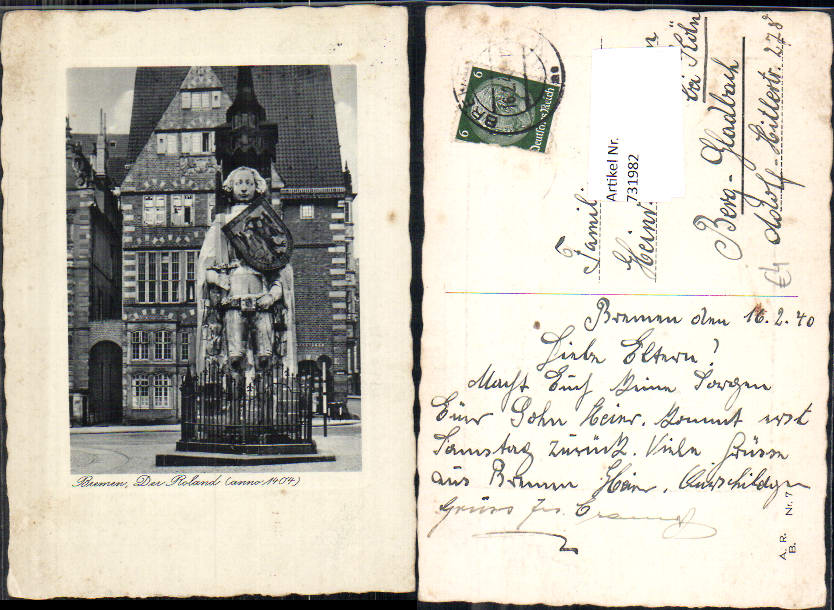 Bremen, Der Roland (anno 1404)
6 6
Deutsches Reich
Artikel Nr.
731982
Famili
Hein
bei Köln
Berg-Gladbach
Adolf-Hitlerstr. 278
Bremen den 16.2.40
Liebe Eltern!
Macht Euch keine Sorgen
Euer Sohn Heiner. Kommt erst
Samstag zurück. Viele Grüsse
aus Bremen Heiner.
Gruss
A. R.
B.
Nr. 7